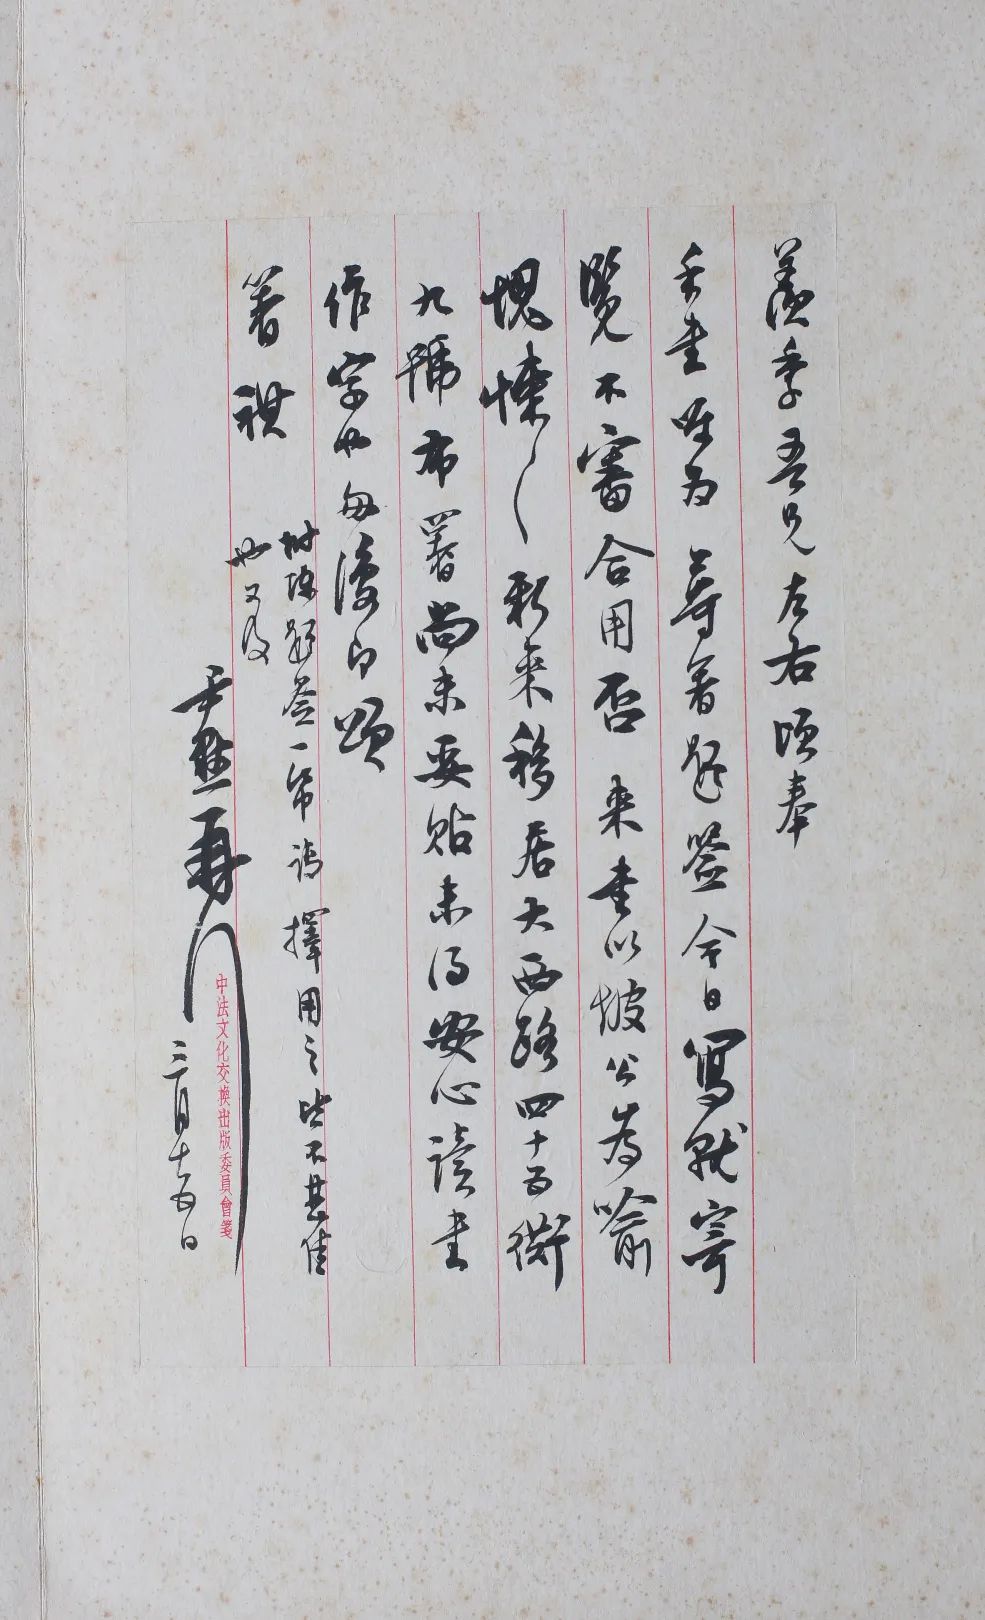 羨季吾兄左右頃奉
手書唯為尊著題簽今日寫就寄
覽不審合用否來書以坡公為喻
愧悚〻新來移居大西路四十五街
九號布署尚未妥貼未得安心讀書
作字也匆復即頌
著祺
附陳題簽一帋請擇用之皆不甚佳
也又及
尹默再
三月十五日
中法文化交換出版委員會箋